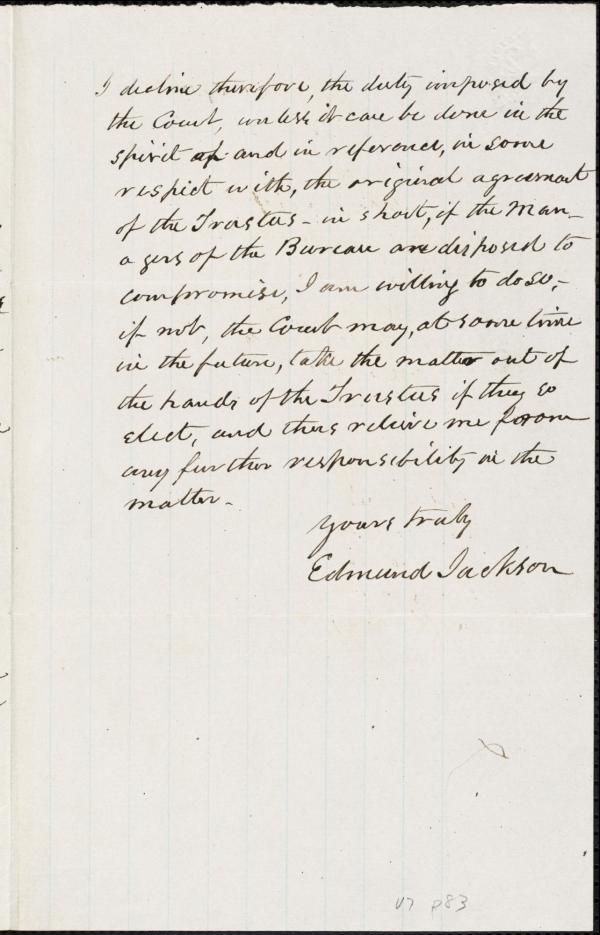 I decline therefore, the duty imposed by
the Court, unless it can be done in the
spirit of and in reference, in some
respect with, the original agreement
of the Trustees - in short, if the Man-
agers of the Bureau are disposed to
compromise, I am willing to do so, -
if not, the Court may, at some time
in the future, take the matter out of
the hands of the Trustees if they so
elect, and thus relieve me from
any further responsibility in the
matter.
Yours truly
Edmund Jackson
V7 p83